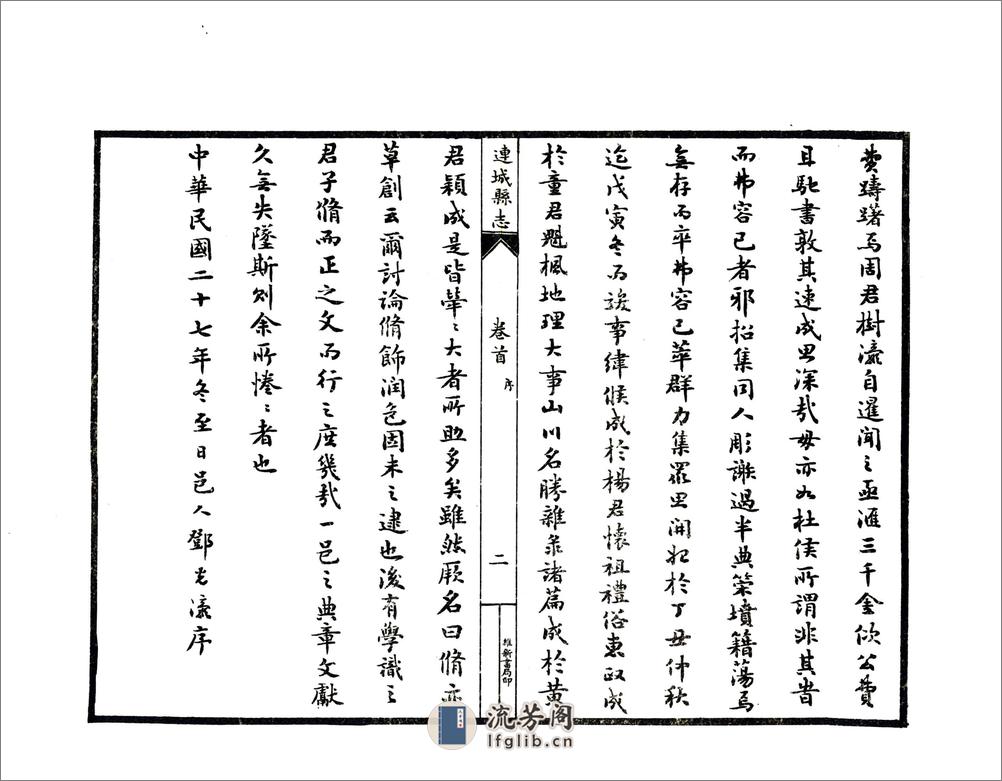 費躊躇焉周君樹瀛自暹聞之亟滙三千金佽公費
且馳書敦其速成思深哉毋亦如杜侯所謂非其時
而弗容已者邪招集同人彫謝過半典策墳籍蕩焉
無存而卒弗容已萃群力集眾思開始於丁丑仲秋
迄戊寅冬而竣事緯候成於楊君懷祖禮俗東政成
於童君魁楓地理大事山川名勝雜彔諸篇成於黄
連城縣志
卷首
序
二
維新書局印
君穎成是皆犖〻大者所助多矣雖然厥名曰脩亦
草創云爾討論脩飾潤色固未之逮也後有學識之
君子脩而正之文而行之庶幾哉一邑之典章文獻
久無失墜斯則余所惓〻者也
中華民國二十七年冬至日邑人鄧光瀛序
流芳阁
lfglib.cn